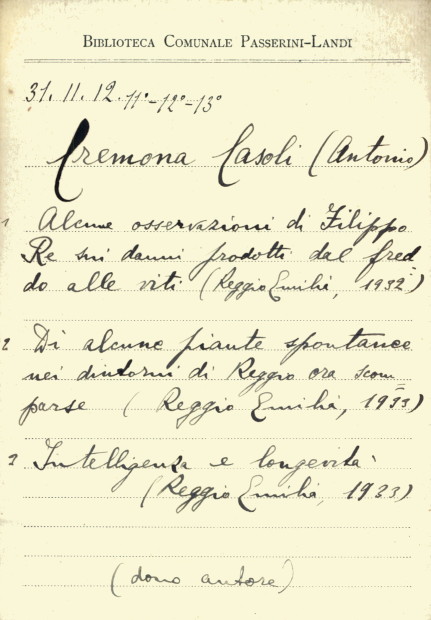 BIBLIOTECA COMUNALE PASSERINI-LANDI
31. 11. 12. 11°-12°-13°
Cremona Casoli (Antonio)
1 Alcune osservazioni di Filippo
Re sui danni prodotti dal fred=
do alle viti (Reggio Emilia, 1932)
2 Di alcune piante spontanee
nei dintorni di Reggio ora scom=
parse (Reggio Emilia, 1933)
3 Intelligenza e longevità
(Reggio Emilia, 1933)
(dono autore)